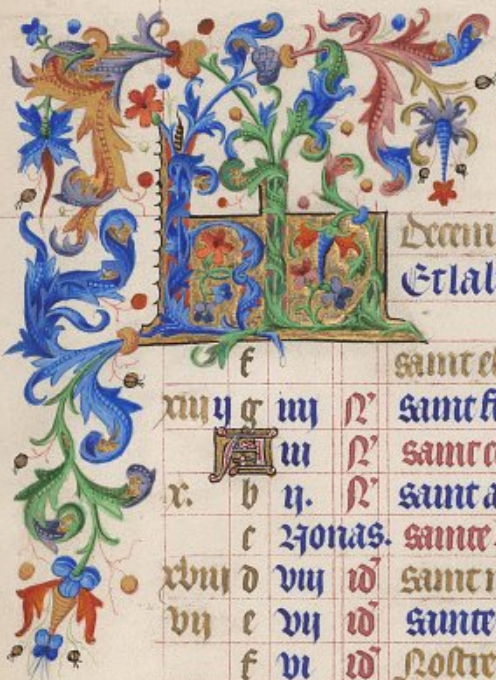 KL
Decem
Et la l
f saint el
xiii g iiii N' saint f
A iii N' saint c
x. b ii. N' saint a
c Nonas. sainte
xviii d viii id' saint n
vii e vii id' sainte
f vi id' Nostre